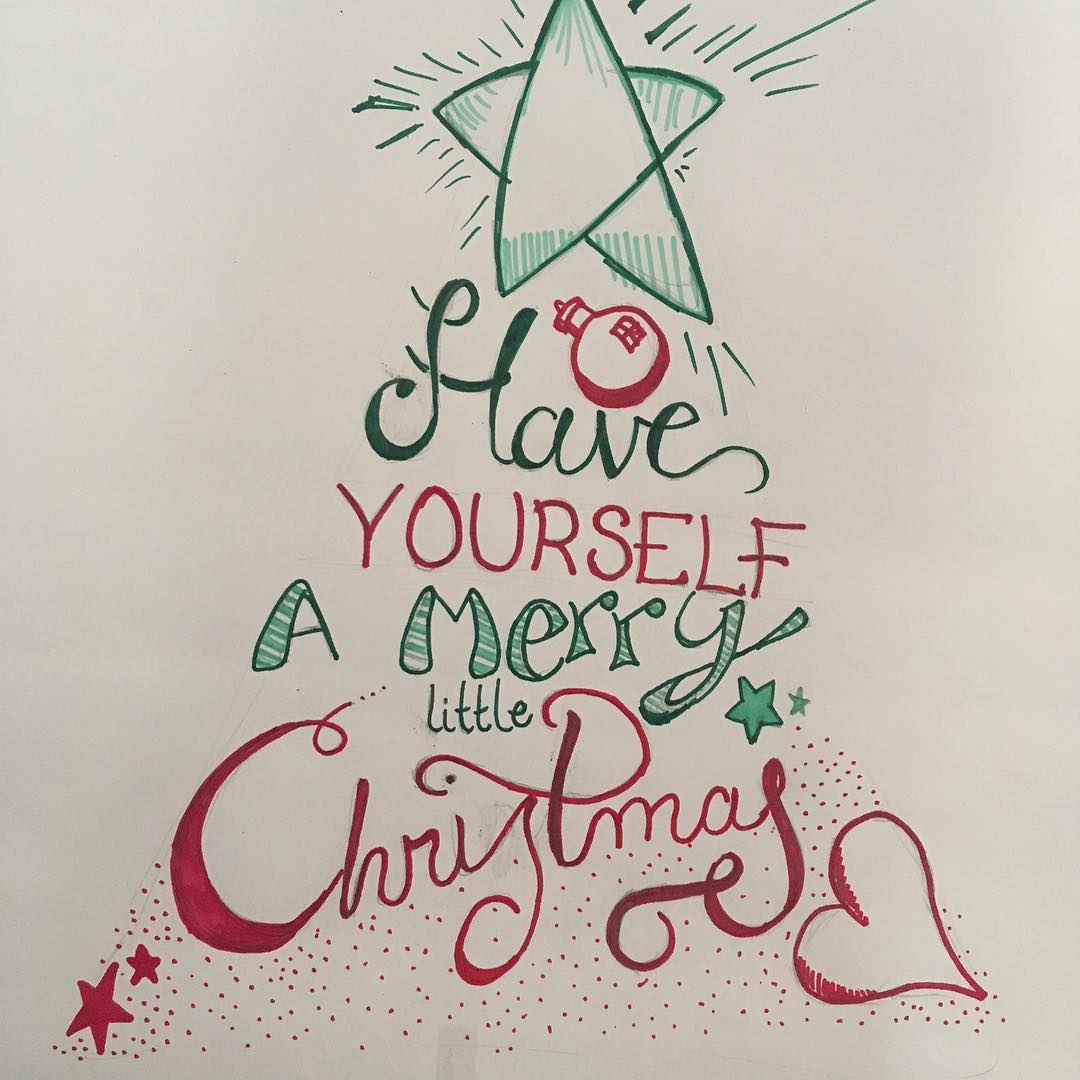 Have
YOURSELF
A Merry
little
Christmas